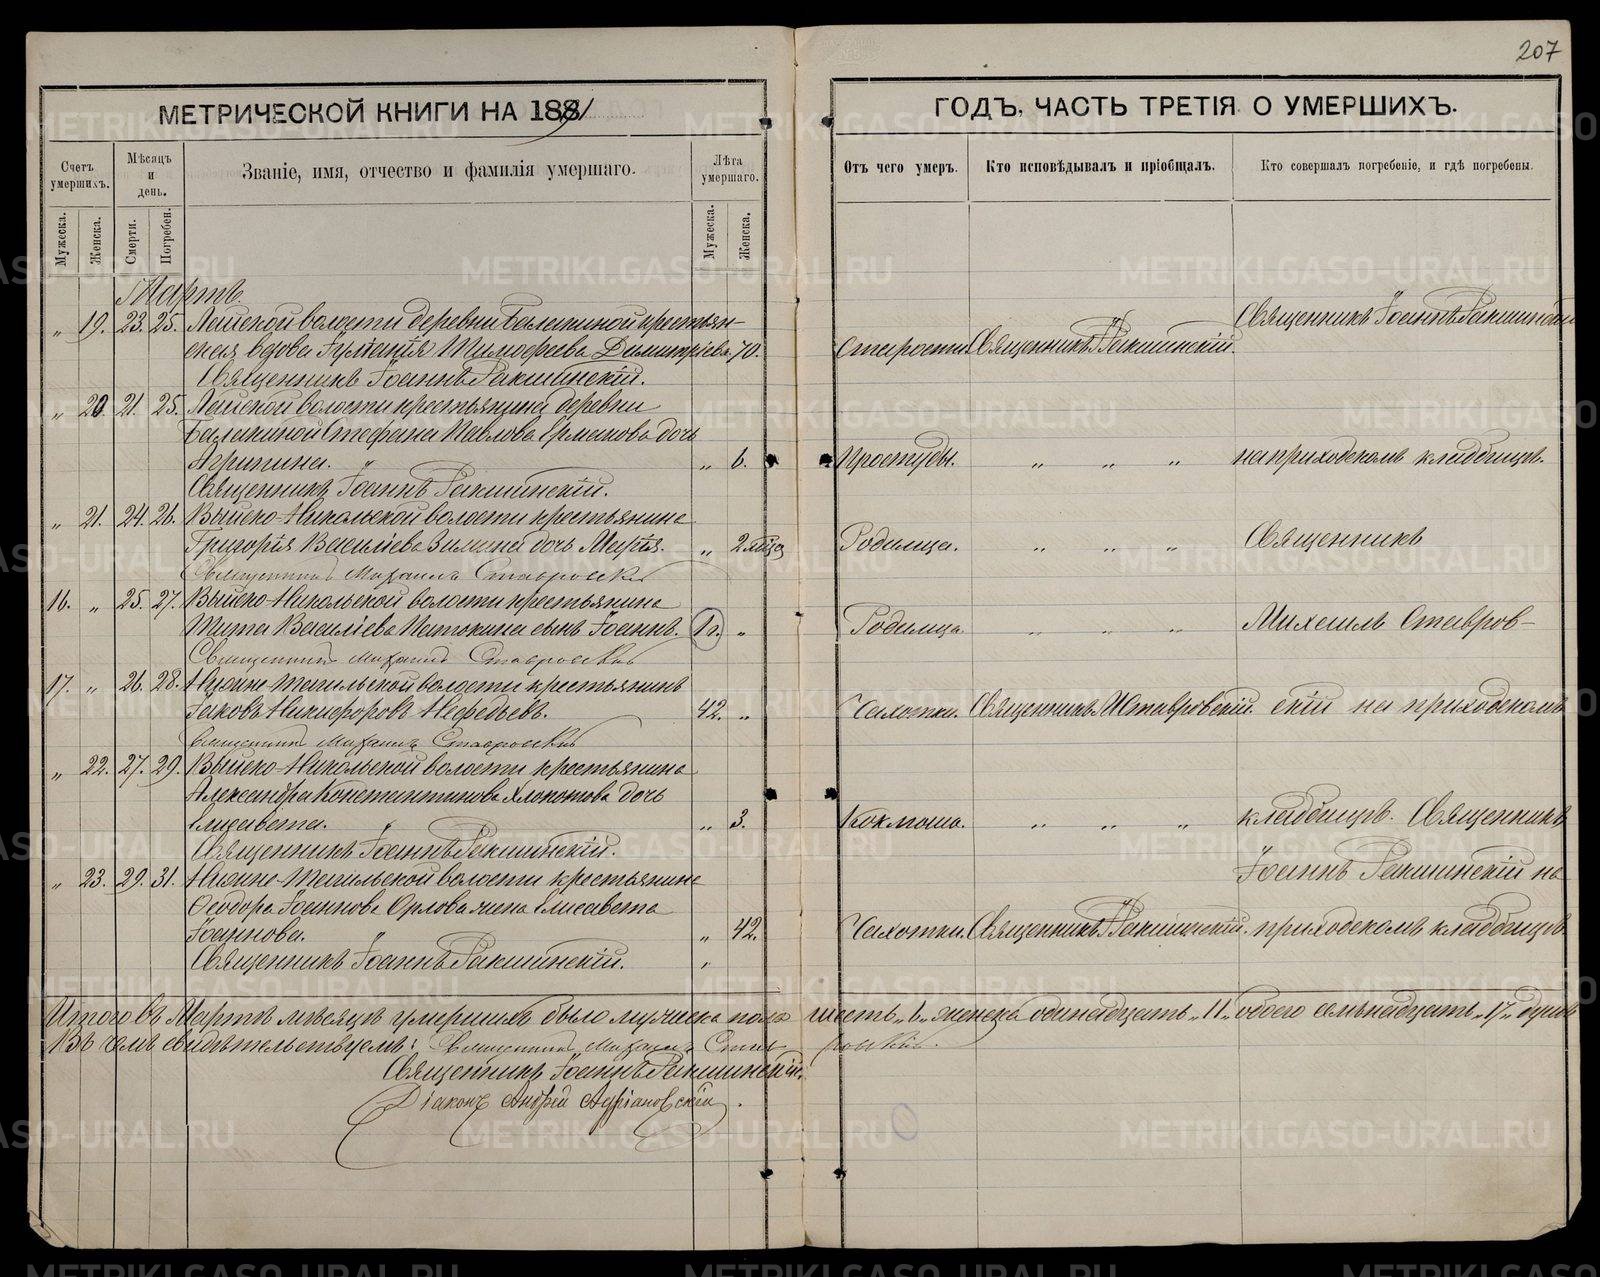 207
МЕТРИЧЕСКОЙ КНИГИ НА 1891
ГОДЪ, ЧАСТЬ ТРЕТІЯ О УМЕРШИХЪ.
Счетъ умершихъ.
Мѣсяцъ и день.
Званіе, имя, отчество и фамилія умершаго.
Лѣта умершаго.
Отъ чего умеръ.
Кто исповѣдывалъ и пріобщалъ.
Кто совершалъ погребеніе, и гдѣ погребены.
Мужеска.
Женска.
Смерти.
Погребен.
Мужеска.
Женска.
Мартъ.
„ 19. 23. 25. Лайской волости деревни Балакиной крестьян-
ская вдова Іуліанія Тимофеева Димитріева 70. Старости Священникъ І Ракшинскій. Священникъ Іоаннъ Ракшинскій
Священникъ Іоаннъ Ракшинскій.
„ 20. 21. 25. Лайской волости крестьянина деревни
Балакиной Стефана Павлова Ермакова дочь
Агрипина. „ 6. Простуды. „ „ „ на приходскомъ кладбищѣ.
Священникъ Іоаннъ Ракшинскій.
„ 21. 24. 26. Выйско-Никольской волости крестьянина
Григорія Василіева Зимина дочь Марія. „ 2 мѣся Родимца. „ „ „ Священникъ
Священникъ Михаилъ Ставровскій
16. „ 25. 27. Выйско-Никольской волости крестьянина
Тита Василіева Патокина сынъ Іоаннъ. 1 г. „ Родимца „ „ „ Михаилъ Ставров-
Священникъ Михаилъ Ставровскій
17. „ 26. 28. Нижне-Тагильской волости крестьянинъ
Іаковъ Никифоровъ Мефедьевъ. 42. „ Чахотки. Священникъ М Ставровскій. скій на приходскомъ
Священникъ Михаилъ Ставровскій
„ 22. 27. 29. Выйско-Никольской волости крестьянина
Александра Константинова Хлопотова дочь
Елисавета. „ 3. Коклюша. „ „ „ кладбищѣ. Священникъ
Священникъ Іоаннъ Ракшинскій.
Іоаннъ Ракшинскій на
„ 23. 29. 31. Нижне-Тагильской волости крестьянина
Ѳеодора Іоаннова Орлова жена Елисавета
Іоаннова. „ 42. Чахотки. Священникъ І Ракшинскій. приходскомъ кладбищѣ
Священникъ Іоаннъ Ракшинскій.
Итого въ Мартѣ мѣсяцѣ умершихъ было мужеска пола шесть „6„ женска одинадцать „11„ обоего семьнадцать „17„ душъ
Въ чемъ свидѣтельствуемъ: Священникъ Михаилъ Ставровскій.
Священникъ Іоаннъ Ракшинскій.
Діаконъ Андрей Адріановскій.
METRIKI.GASO-URAL.RU